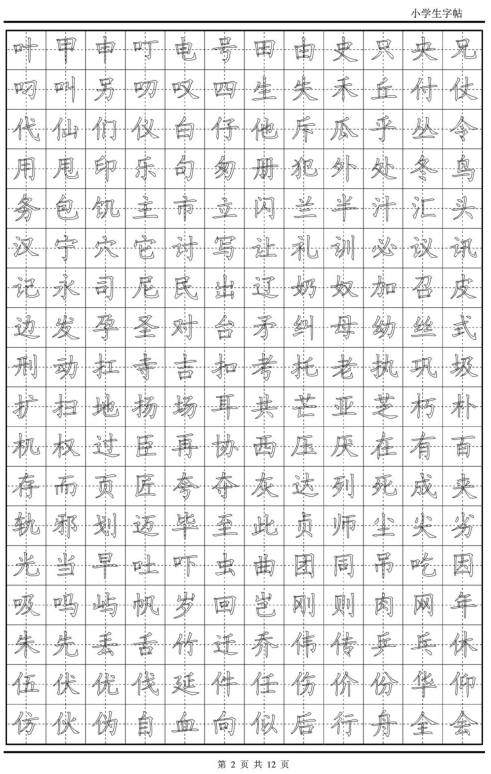 小学生字帖
叶甲申叮电号田由史只央兄
叼叫另叨叹四生失禾丘付仗
代仙们仪白仔他斥瓜乎丛令
用甩印乐句匆册犯外处冬鸟
务包饥主市立闪兰半汁汇头
汉宁穴它讨写让礼训必议讯
记永司尼民出辽奶奴加召皮
边发孕圣对台矛纠母幼丝式
刑动扛寺吉扣考托老执巩圾
扩扫地扬场耳共芒亚芝朽朴
机权过臣再协西压厌在有百
存而页匠夸夺灰达列死成夹
轨邪划迈毕至此贞师尘尖劣
光当早吐吓虫曲团同吊吃因
吸吗屿帆岁回岂刚则肉网年
朱先丢舌竹迁乔伟传乒乓休
伍伏优伐延件任伤价份华仰
仿伙伪自血向似后行舟全会
第 2 页 共 12 页